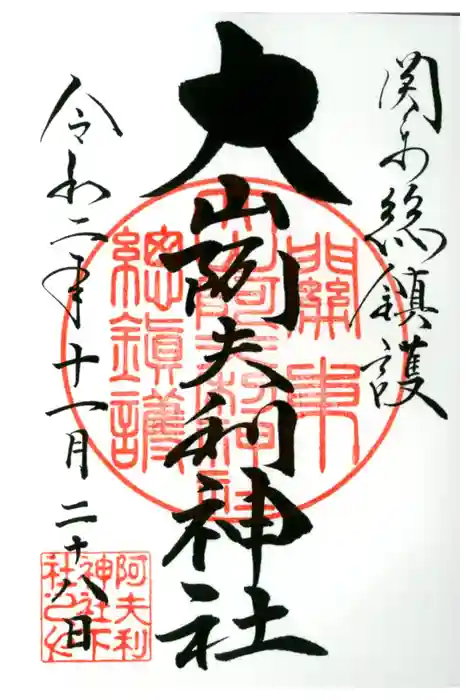 関東総鎮護
大山阿夫利神社
令和二年十一月二十八日
關東
總鎮護
阿夫利
神社下
社